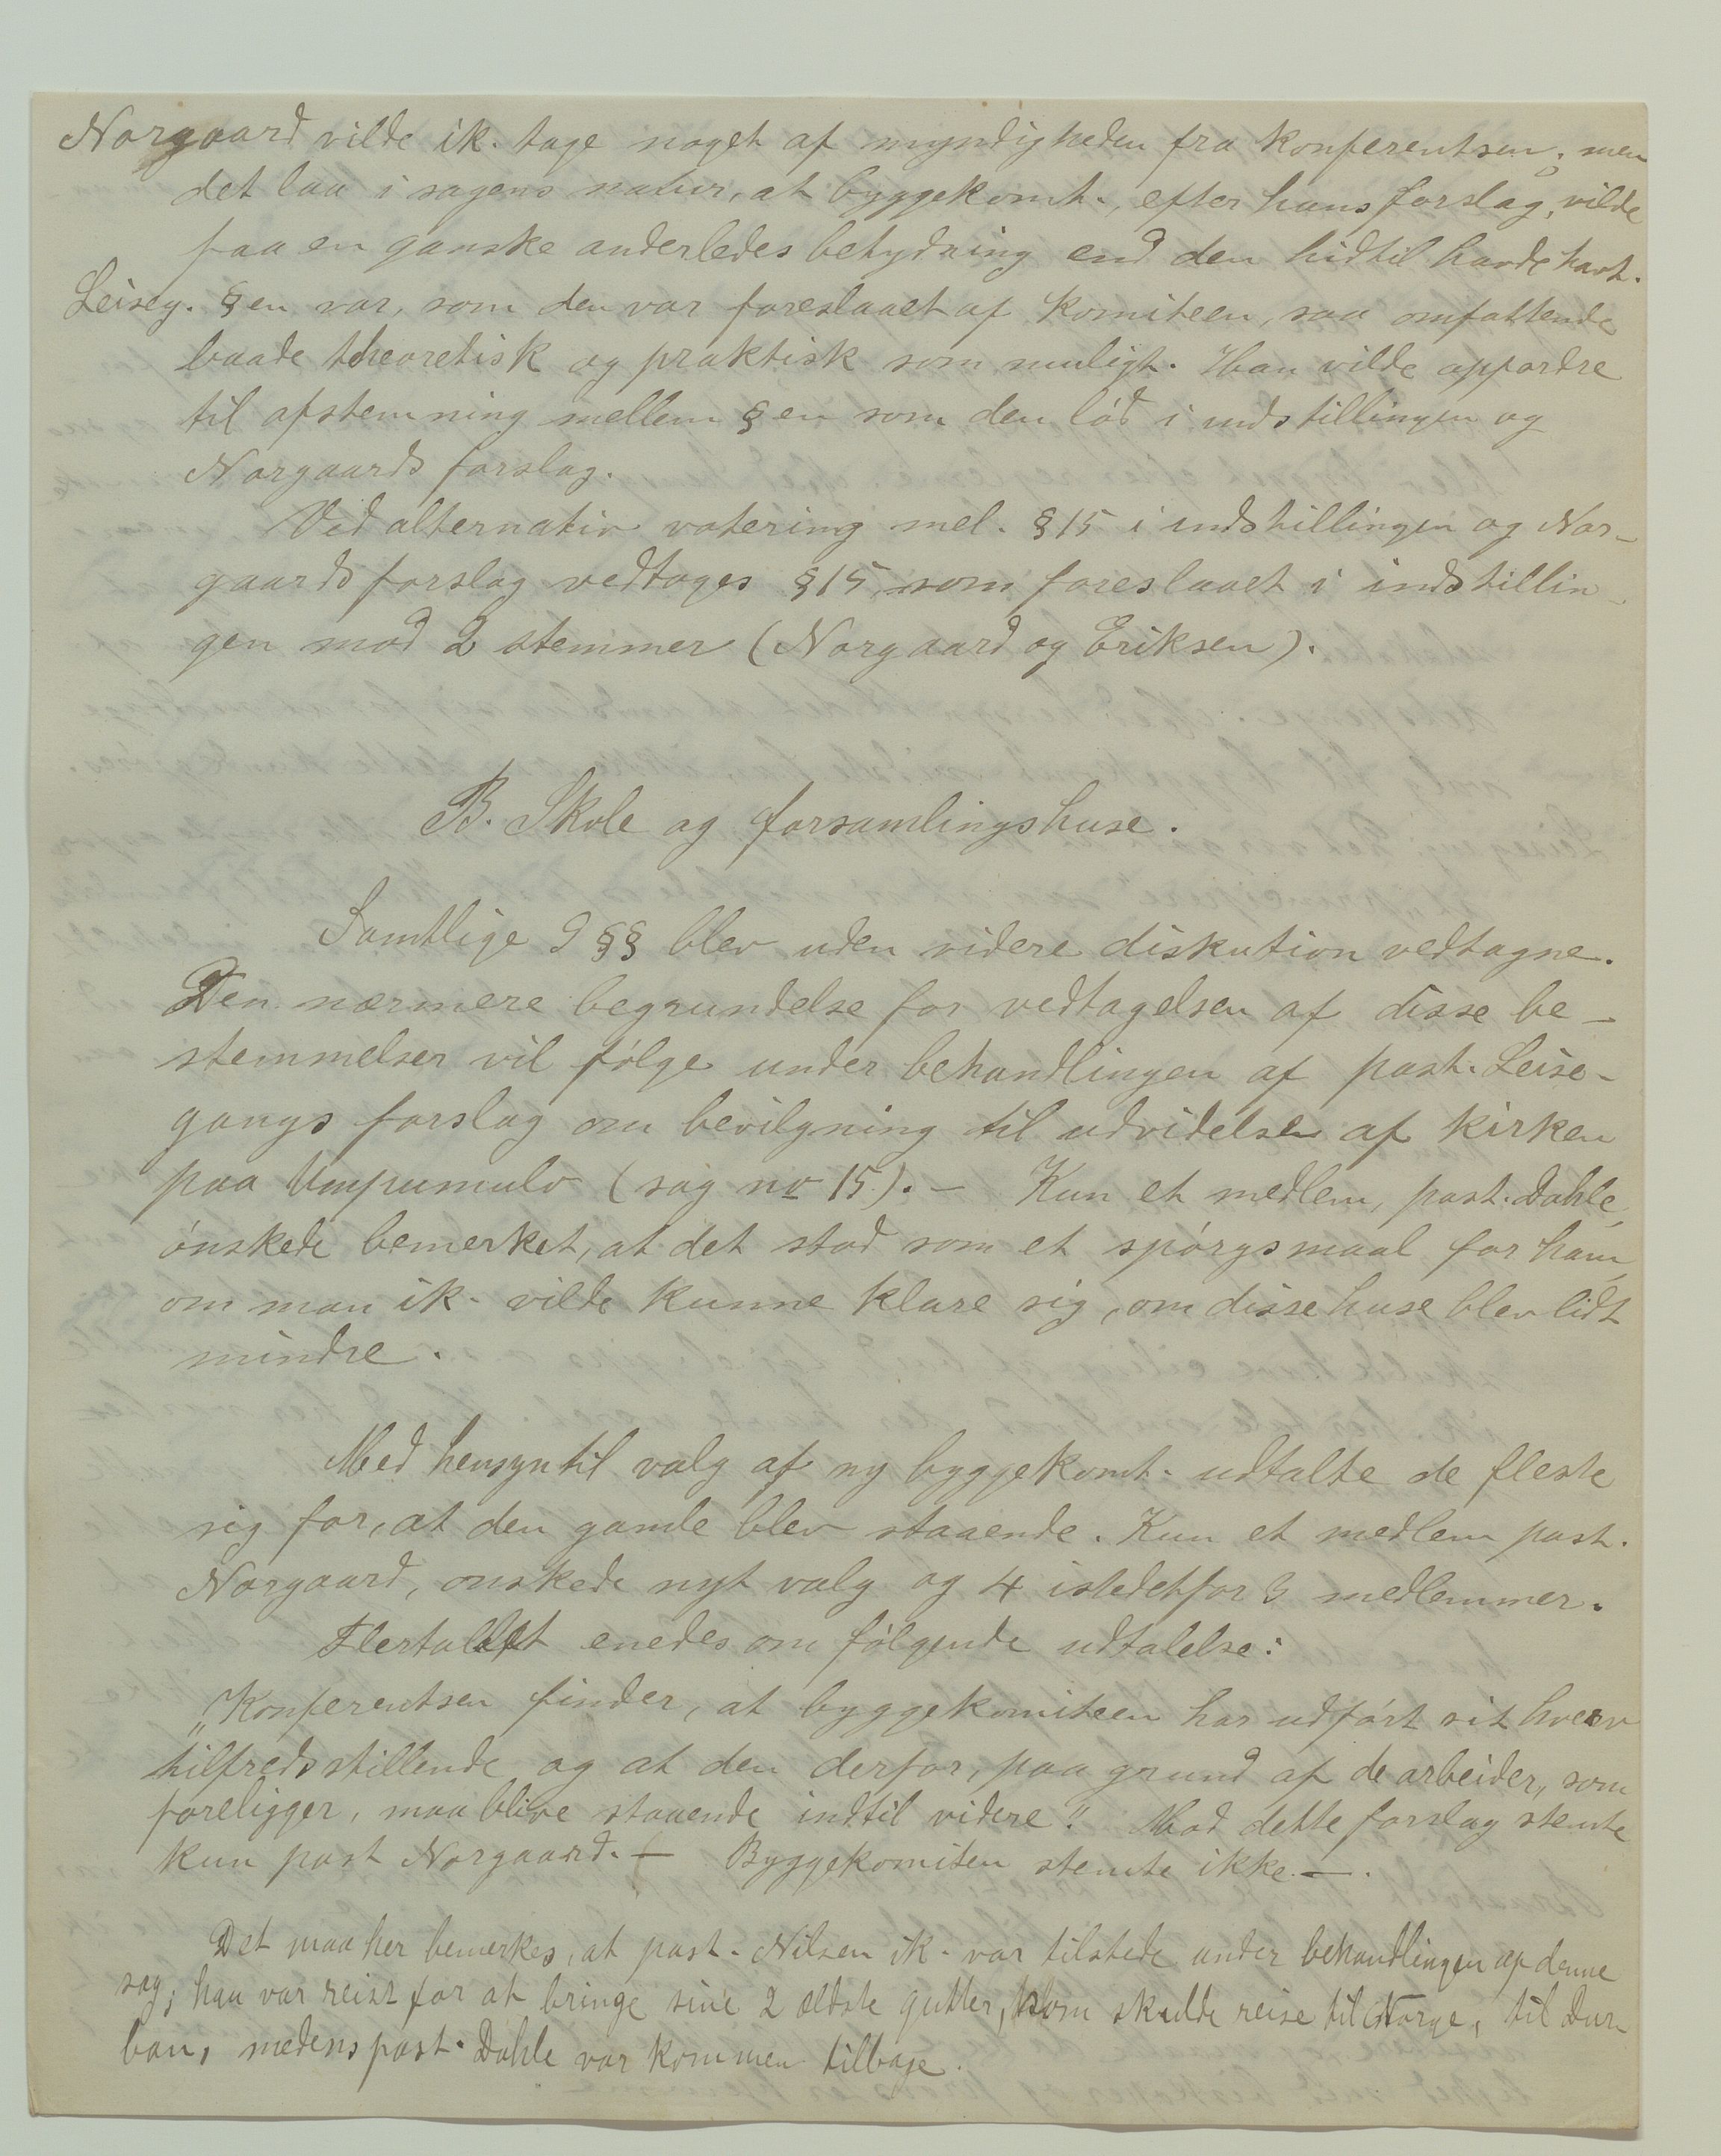 Norgaard vilde ik. tage noget af myndigheden fra konferentsen; men
det laa i sagens natur, at byggekomt., efter hans forslag, vilde
faa en ganske anderledes betydning end den hidtil havde havt.
Leiseg. §en var, som den var foreslaaet af komiteen, saa omfattende
baade theoretisk og praktisk som muligt. Han vilde oppfordre
til afstemning mellem §en som den lød i indstillingen og
Norgaards forslag.
Ved alternativ votering mel. §15 i indstillingen og Nor-
gaards forslag vedtoges §15 som foreslaaet i indstillin-
gen mod 2 stemmer (Norgaard og Eriksen).
B. Skole og forsamlingshuse.
Samtlige 9 §§ blev uden videre diskution vedtagne.
Den nærmere begrundelse for vedtagelsen af disse be-
stemmelser vil følge under behandlingen af past. Leise-
gangs forslag om bevilgning til udvidelse af kirken
paa Umpumulo (sag no 15). - Kun et medlem, past. Dahle,
ónskede bemerket, at det stod som et spórgsmaal for ham,
om man ik. vilde kunne klare sig, om disse huse blev lidt
mindre.
Med hensyn til valg af ny byggekomt. udtalte de fleste
sig for, at den gamle blev staaende. Kun et medlem past.
Norgaard, onskede nyt valg og 4 istedetfor 3 medlemmer.
Flertallet enedes om fólgende udtalelse:
„Konferentsen finder, at byggekomiteen har udfórt sit hverv
tilfredsstillende og at den derfor, paa grund af de arbeider, som
foreligger, maa blive staaende indtil videre." Mod dette forslag stemte
kun past Norgaard. - Byggekomiten stemte ikke. -.
Det maa her bemerkes, at past. Nilsen ik. var tilstede under behandlingen af denne
sag; han var reist for at bringe sine 2 ældste gutter, som skulde reise til Norge, til Dur-
ban, medens past. Dahle var kommen tilbage.